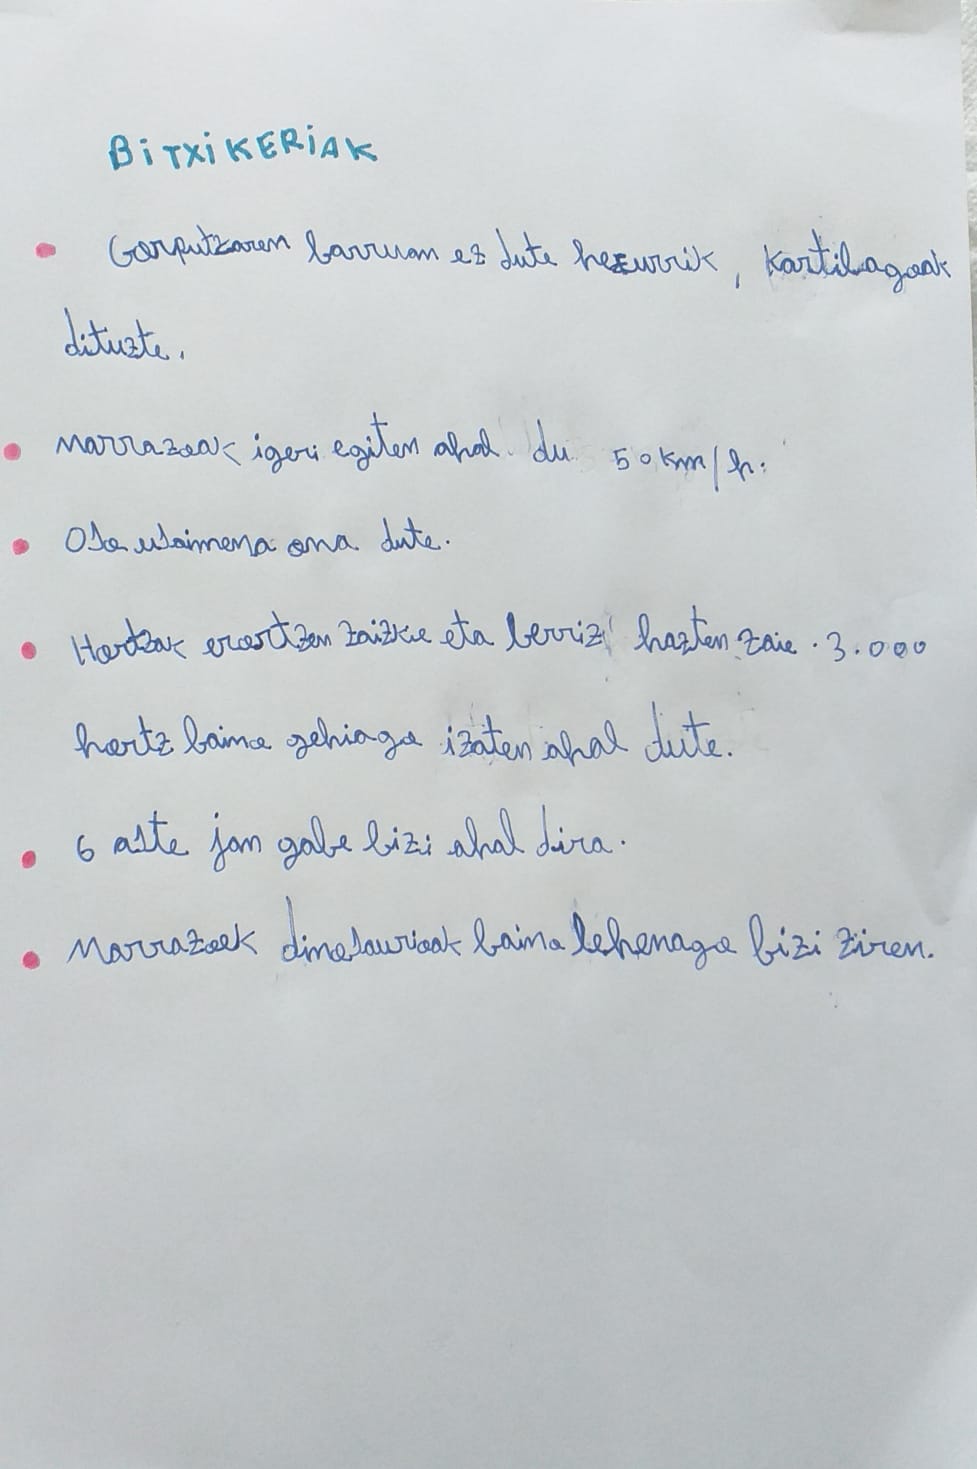 BiTXiKERiAK
• Gorputzaren barruan ez dute hezurrik, kartilagoak
dituzte.
• Marrazoak igeri egiten ahal du 50 km/h.
• Oso usaimena ona dute.
• Hortzak erortzen zaizkie eta berriz hazten zaie. 3.000
hortz baino gehiago izaten ahal dute.
• 6 aste jan gabe bizi ahal dira.
• Marrazoek dinosaurioak baino lehenago bizi ziren.